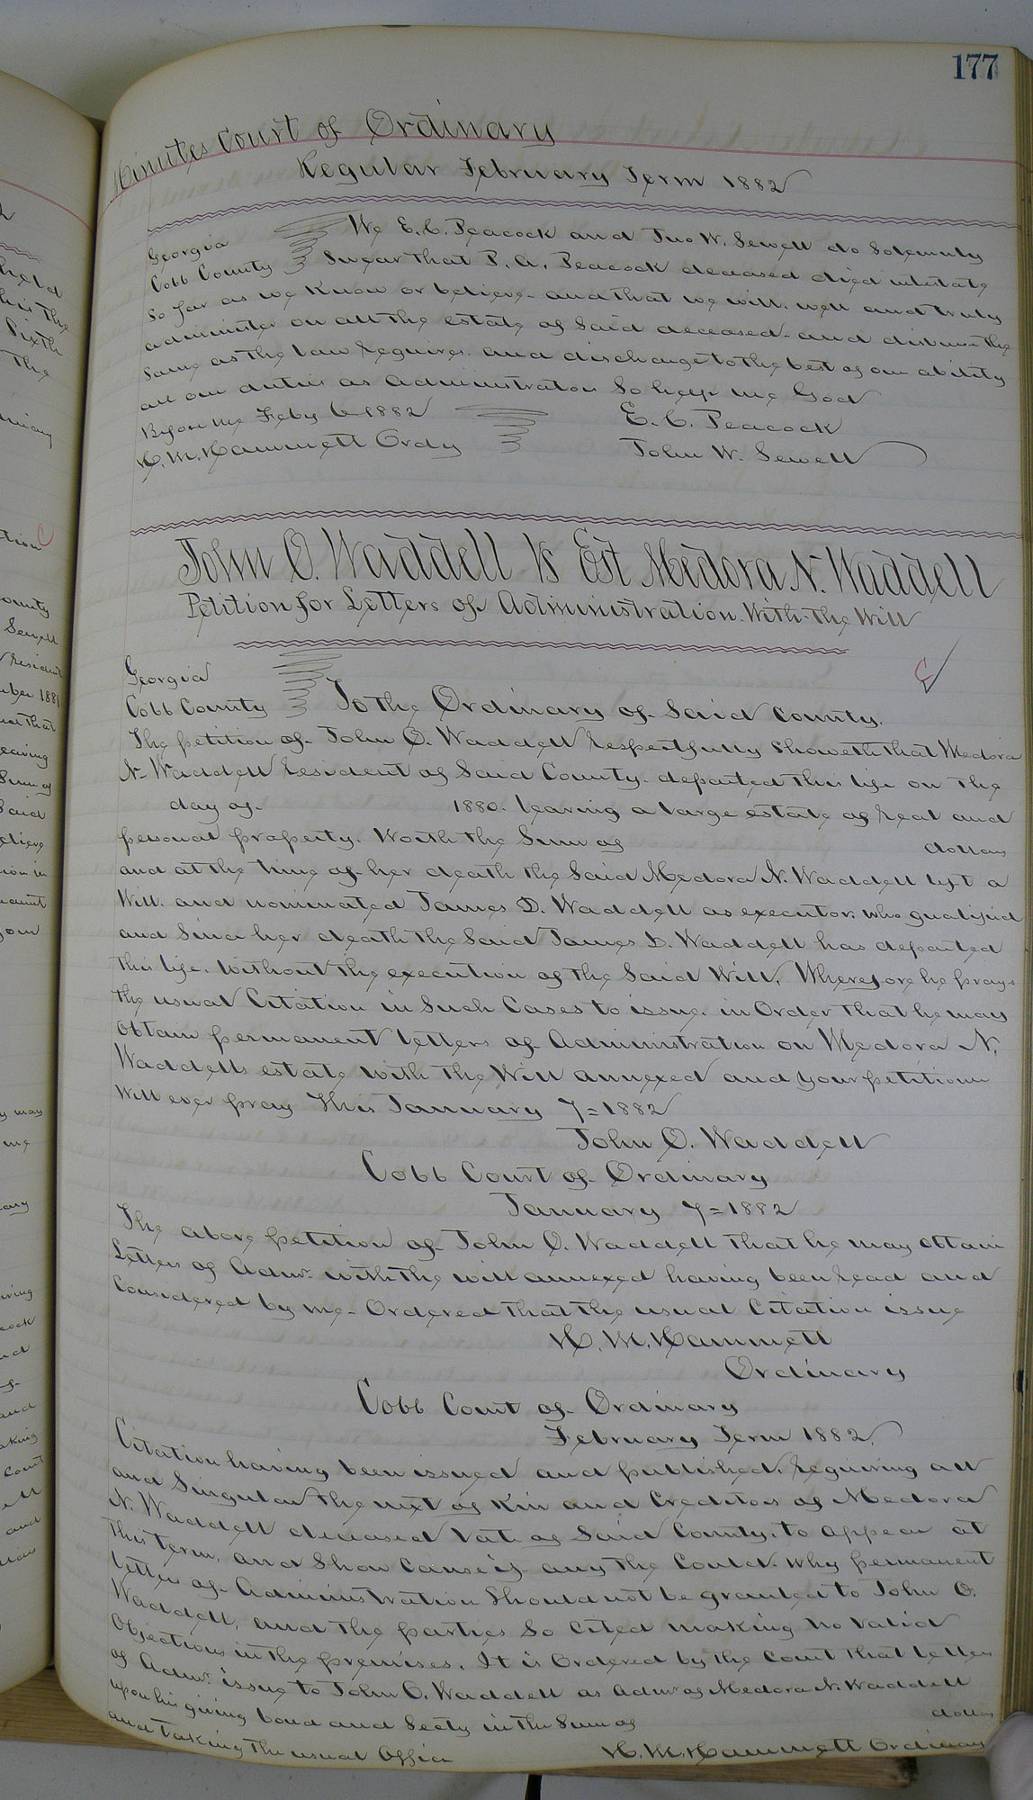 177
Minutes Court of Ordinary
Regular February Term 1882
Georgia We E. C. Peacock and Jno W. Sewell do Solemnly
Cobb County Swear that P. A. Peacock deceased died intestate
So far as we Know or believe and that we will, well and truly
administer on all the estate of Said deceased and disburse the
Same as the law requires, and discharge to the best of our ability
all our duties as Administrators So help me God
Before me Feby 6 1882 E. C. Peacock
H. M. Hammett Ordy John W. Sewell
John O. Waddell Vs Est Medora N. Waddell
Petition for Letters of Administration With the Will
Georgia
Cobb County To the Ordinary of Said County.
The petition of John O. Waddell respectfully Showeth that Medora
N. Waddell resident of Said County. departed this life on the
day of 1880. leaving a large estate of real and
personal property. Worth the Sum of dollars
and at the time of her death the Said Medora N. Waddell left a
Will. and nominated James D. Waddell as executor, who qualified
and Since her death the Said James D. Waddell has departed
this life. Without the execution of the Said Will. Wherefore he prays
the usual Citation in Such Cases to issue. in Order that he may
obtain permanent letters of Administration on Medora N.
Waddells estate with the Will annexed and your petitioner
Will ever pray This January 7=1882
John O. Waddell
Cobb Court of Ordinary
January 7=1882
The above petition of John O. Waddell that he may obtain
Letters of Admr. with the will annexed having been read and
Considered by me - Ordered that the usual Citation issue
H. M. Hammett
Ordinary
Cobb Court of Ordinary
February Term 1882.
Citation having been issued and published, requiring all
and Singular the next of Kin and Creditors of Medora
N. Waddell deceased late of Said County, to appear at
this term, and Show Cause if any the Could. Why permanent
letters of Administration Should not be granted to John O.
Waddell, and the parties So Cited making no valid
Objections in the premises. It is Ordered by the Court that letters
of Admr. issue to John O. Waddell as Admr of Medora N. Waddell
upon his giving bond and Secty in the Sum of dollars
and taking the usual Office
H. M. Hammett Ordinary